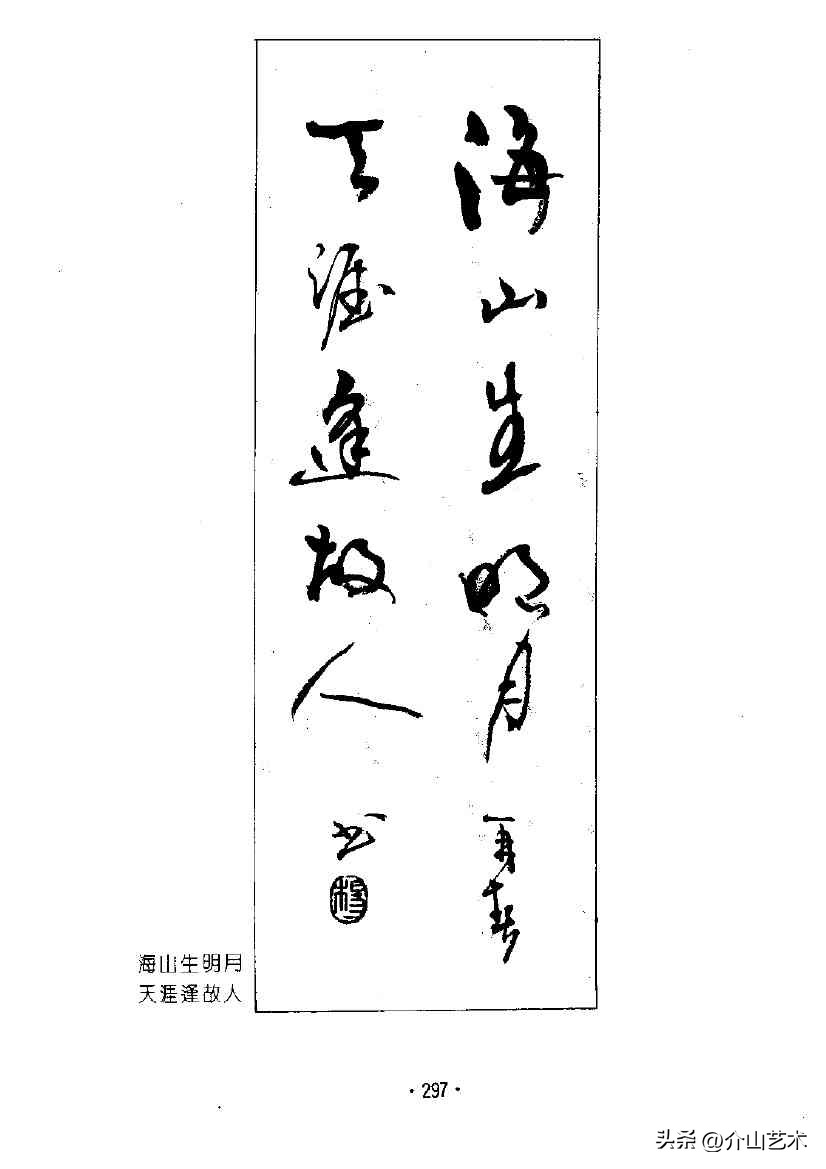 海山生明月
天涯逢故人
书
海山生明月
天涯逢故人
·297·
头条 @介山艺术